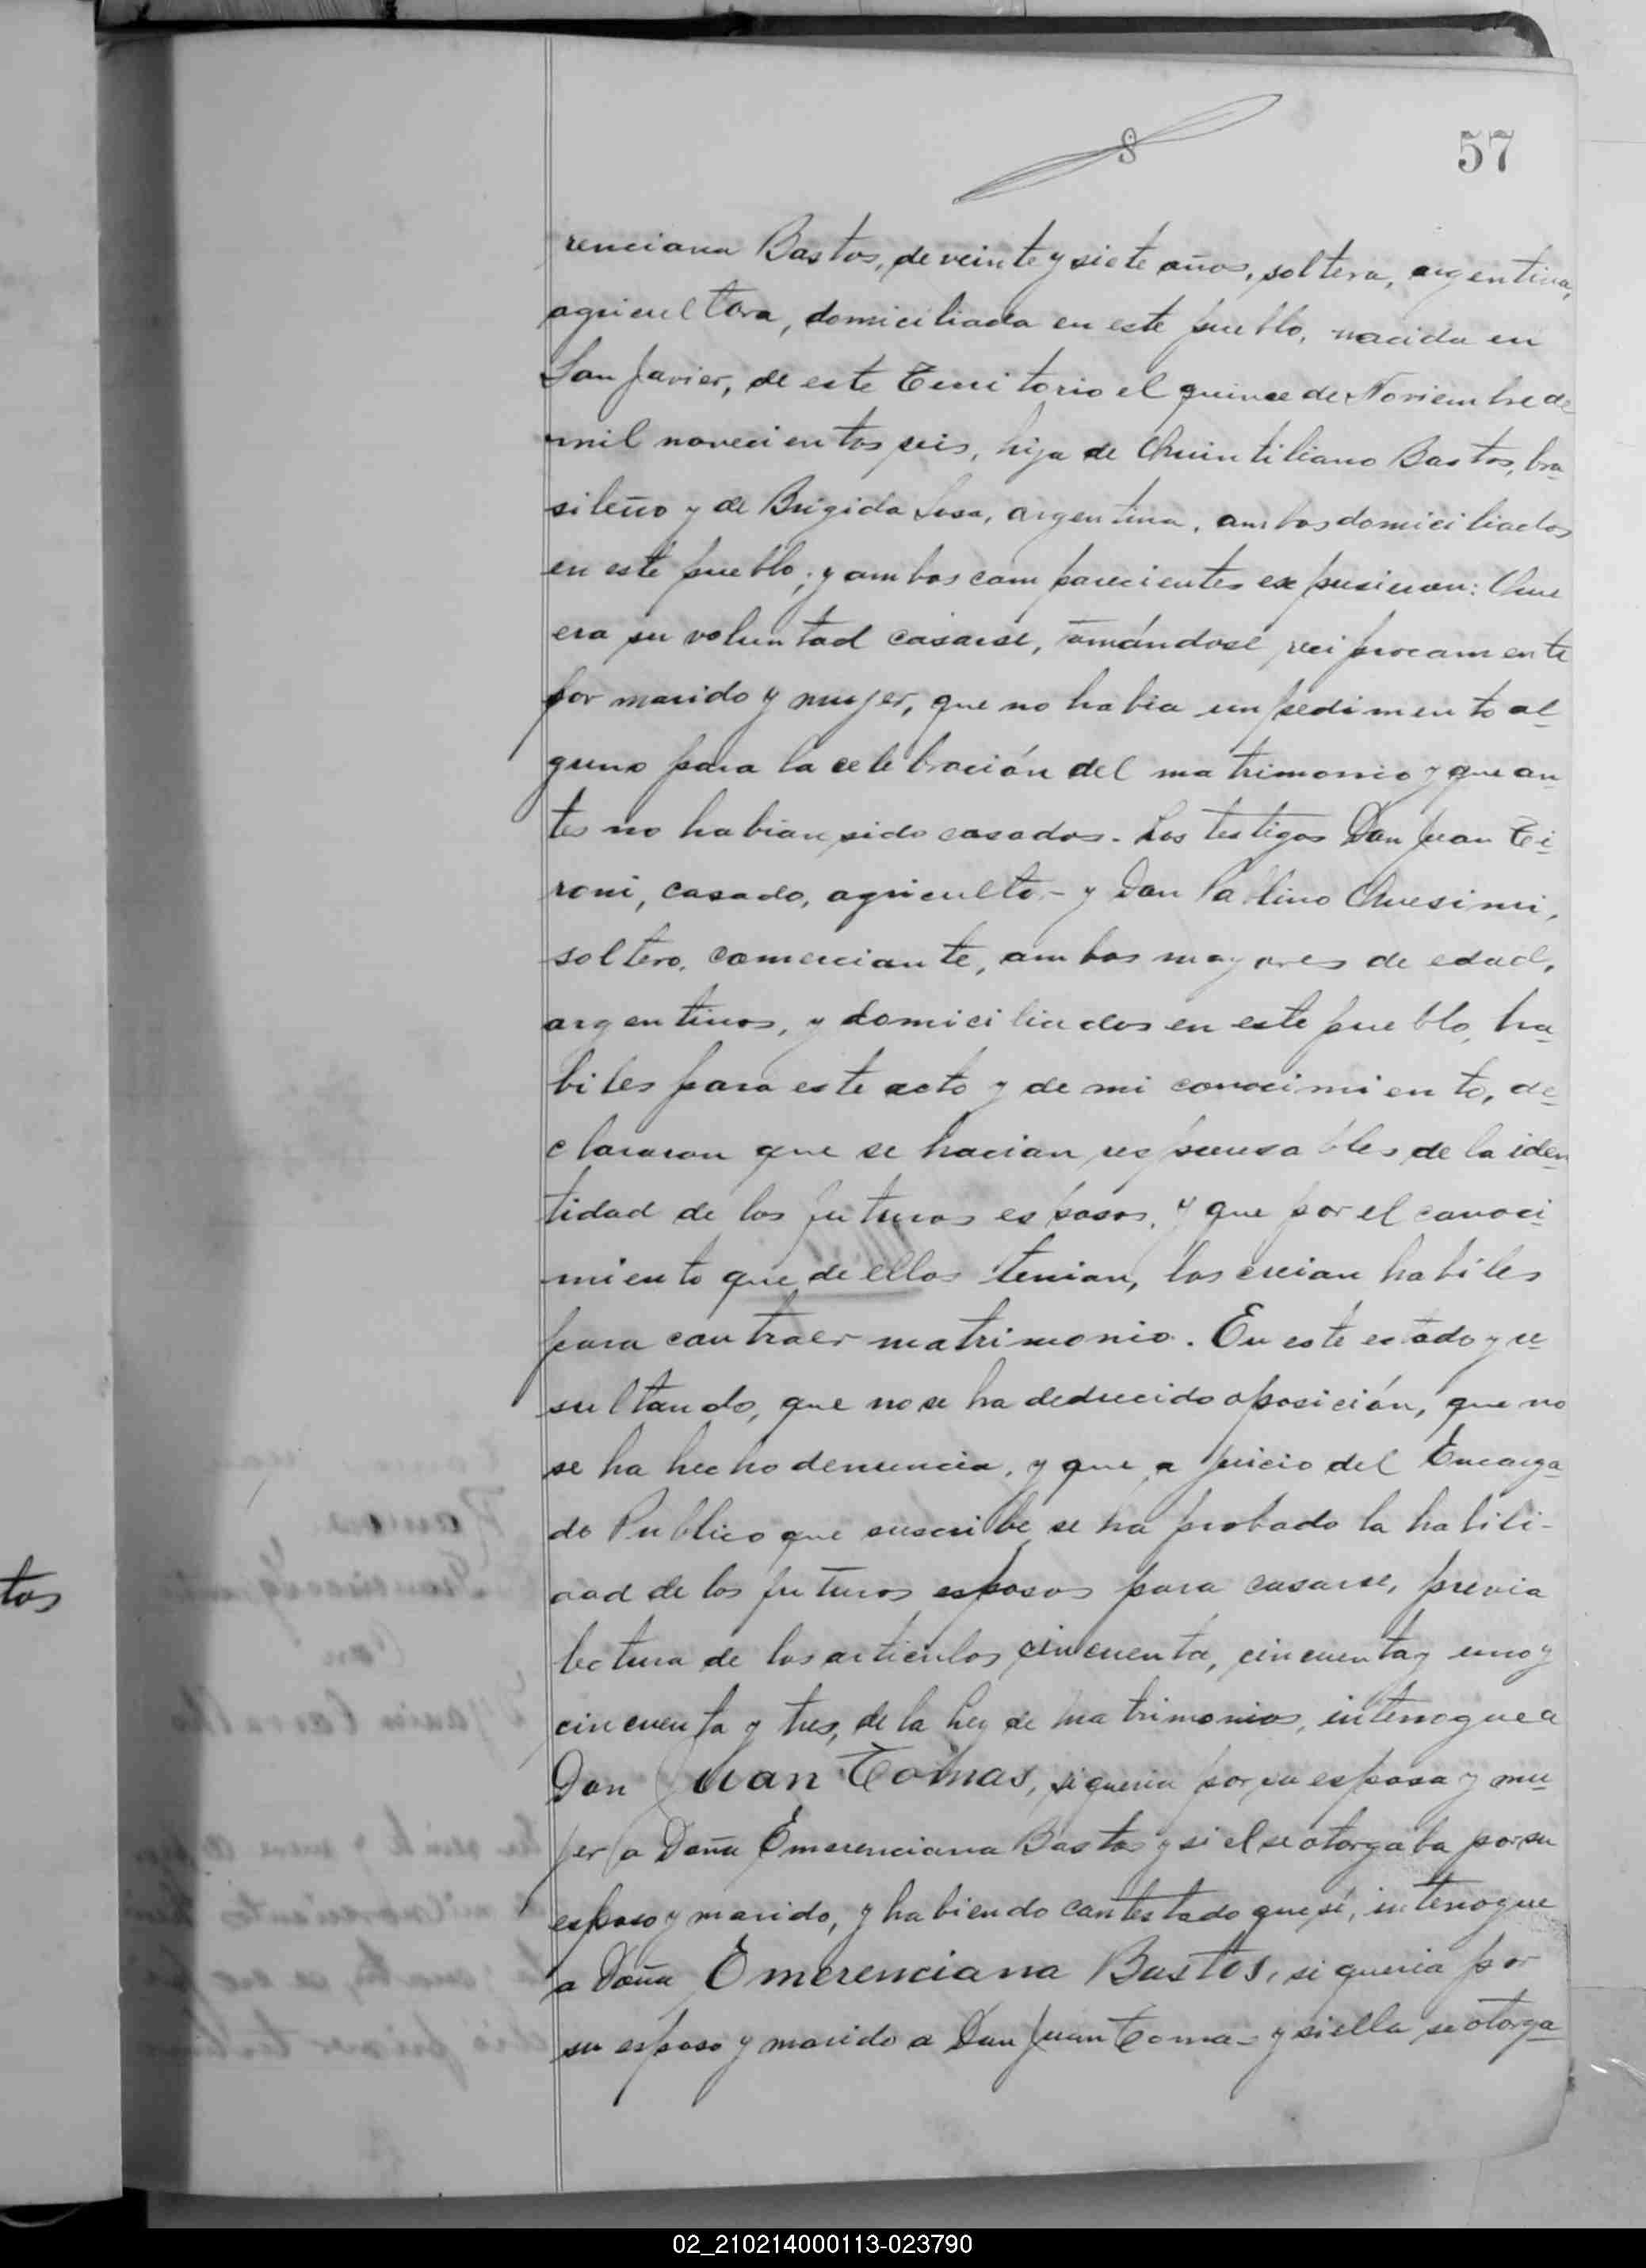 8
57
renciana Bastos, de veinte y siete años, soltera, argentina,
agricultora, domiciliada en este pueblo, nacida en
San Javier, de este Territorio el quince de Noviembre de
mil novecientos seis, hija de Quintiliano Bastos, bra-
sileño y de Brigida Sosa, argentina, ambos domiciliados
en este pueblo; y ambos comparecientes expusieron: Que
era su voluntad casarse, tomándose reciprocamente
por marido y mujer, que no habia impedimento al-
guno para la celebración del matrimonio y que an-
tes no habian sido casados. Los testigos Don Juan Ti-
roni, casado, agricultor y Don
soltero, comerciante, ambos mayores de edad,
argentinos, y domiciliados en este pueblo, ha-
biles para este acto y de mi conocimiento, de-
clararon que se hacian responsables de la iden
tidad de los futuros esposos, y que por el conoci-
miento que de ellos tenian, los creian habiles
para contraer matrimonio. En este estado y re-
sultando, que no se ha deducido oposición, que no
se ha hecho denuncia, y que a juicio del Encarga-
do Publico que suscribe se ha probado la habili-
dad de los futuros esposos para casarse, previa
lectura de los articulos cincuenta, cincuenta y uno y
cincuenta y tres, de la Ley de Matrimonios, interrogue a
Don Juan Tomas, si queria por su esposa y mu-
jer a Doña Emerenciana Bastos y si el se otorgaba por su
esposo y marido, y habiendo contestado que sí, interrogue
a Doña Emerenciana Bastos, si queria por
su esposo y marido a Don Juan Tomas y si ella se otorga-
tos
02_210214000113-023790